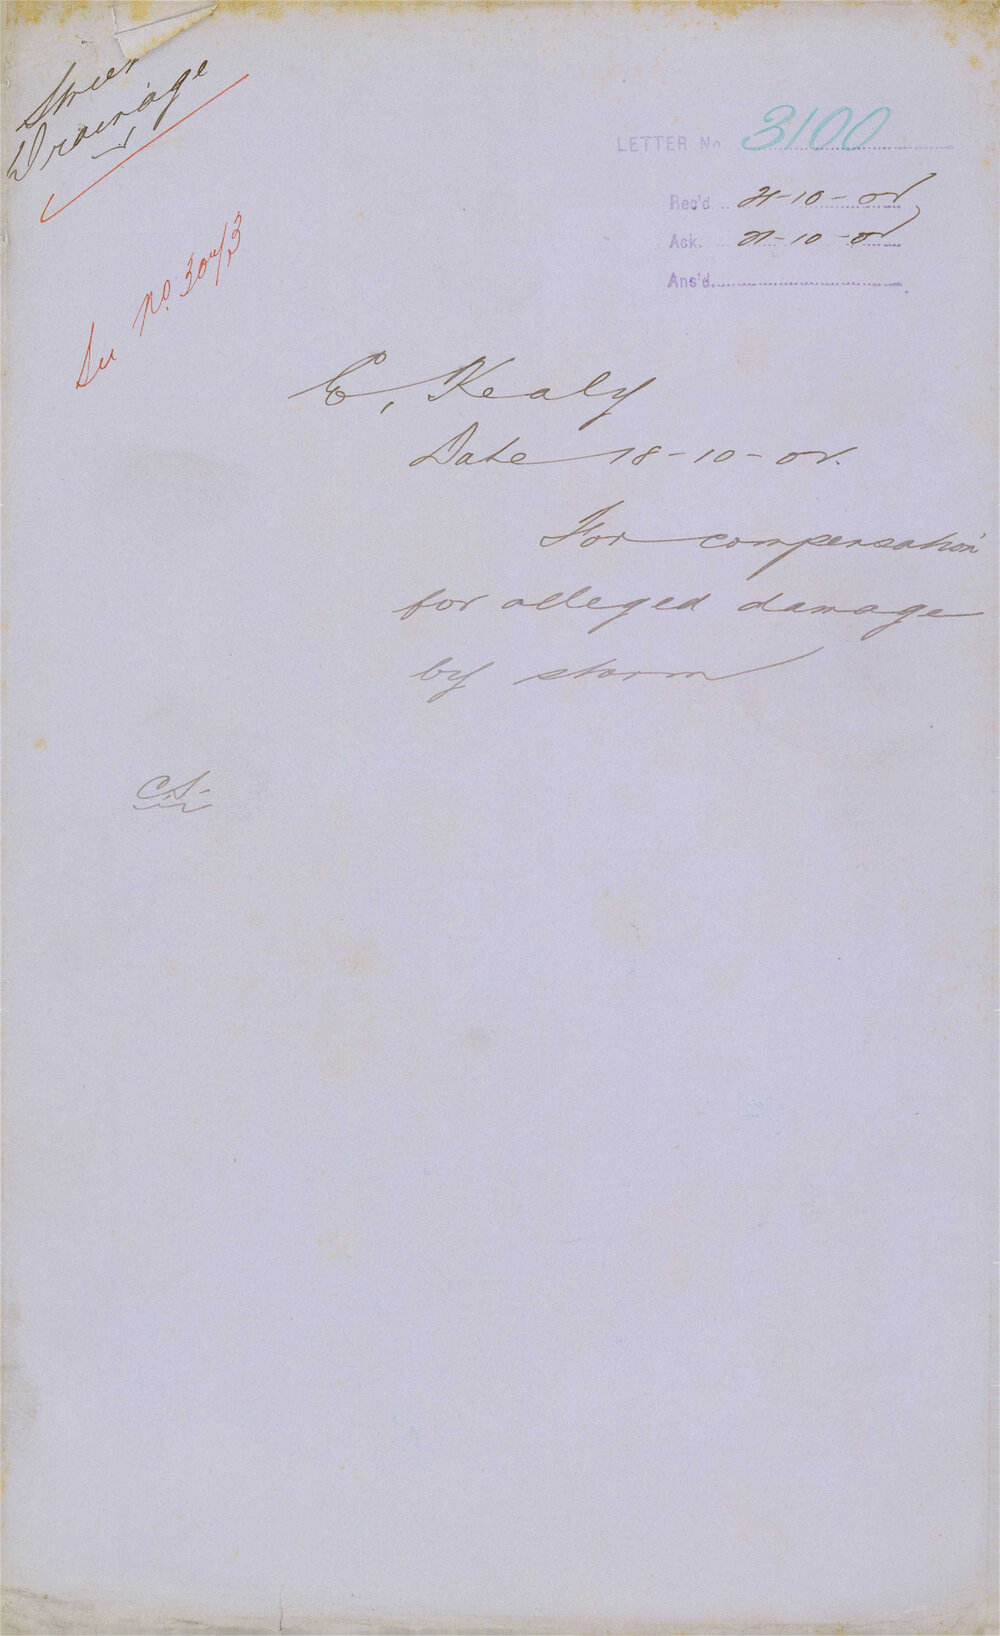 Street
Drainage
LETTER No 3100
Rec'd 21-10-02
Ack. 21-10-02
Ans'd
See No. 3047/3
E. Kealy
Date 18-10-02.
For compensation
for alleged damage
by storm